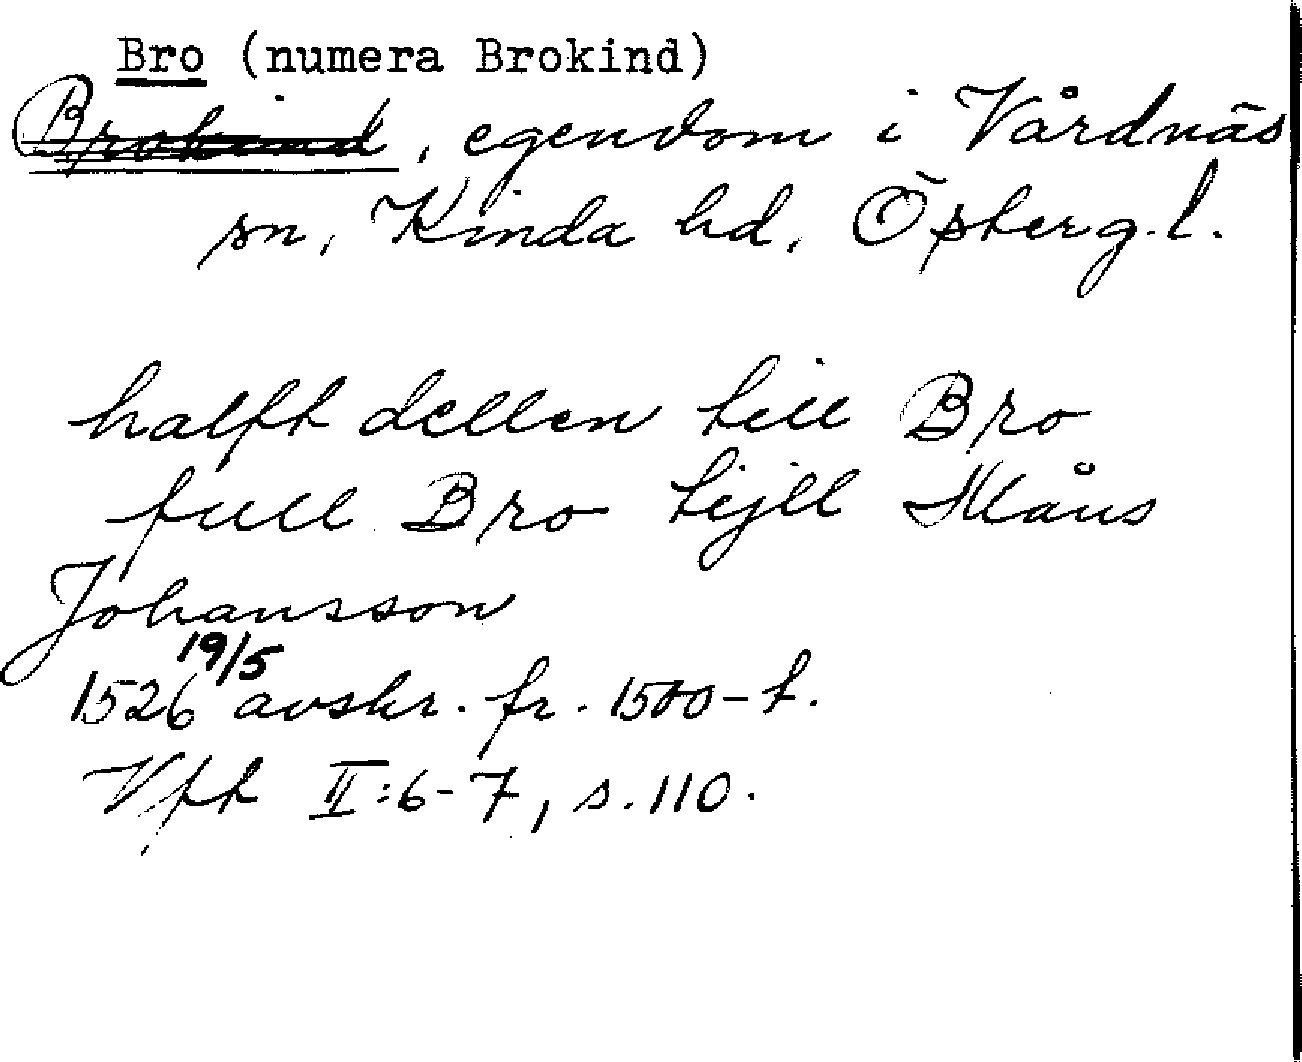 Bro (numera Brokind)
Brokind, egendom i Vårdnäs
sn, Kinda hd, Österg. l.
halft dellen till Bro
full Bro tijll Måns
Johansson
1526 19/5 avskr. fr. 1500-t.
Vfft II:6-7, s. 110.